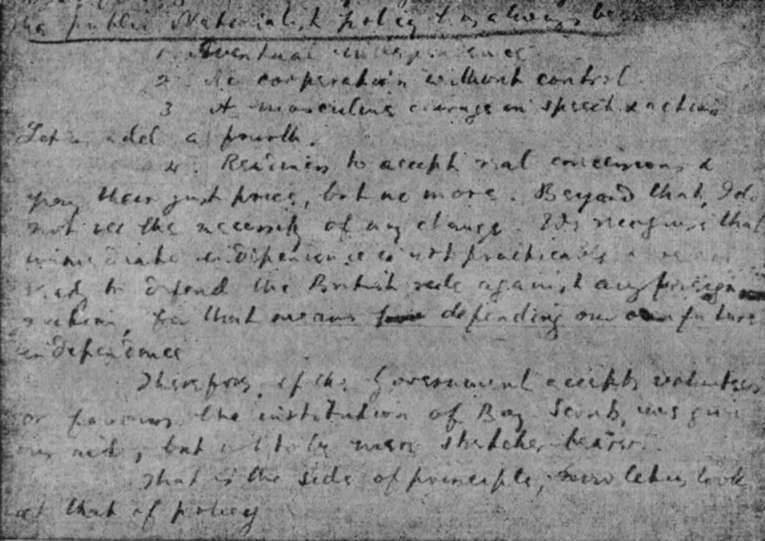 the public Nationalist policy has always been
1. Eventual independence
2. No cooperation without control.
3 A masculine courage in speech & action
Let us add a fourth.
4. Readiness to accept real concessions &
pay their just price, but no more. Beyond that, I do
not see the necessity of any change. We recognise that
immediate independence is not practicable
ready to defend the British rule against any foreign
for that means depending our own future
independence
Therefore, if the Government accepts volunteers
or favours the institution of Boy Scouts, we give
our aid, but not to be mere stretcher bearers.
That is the side of principle, now let us look
at that of policy